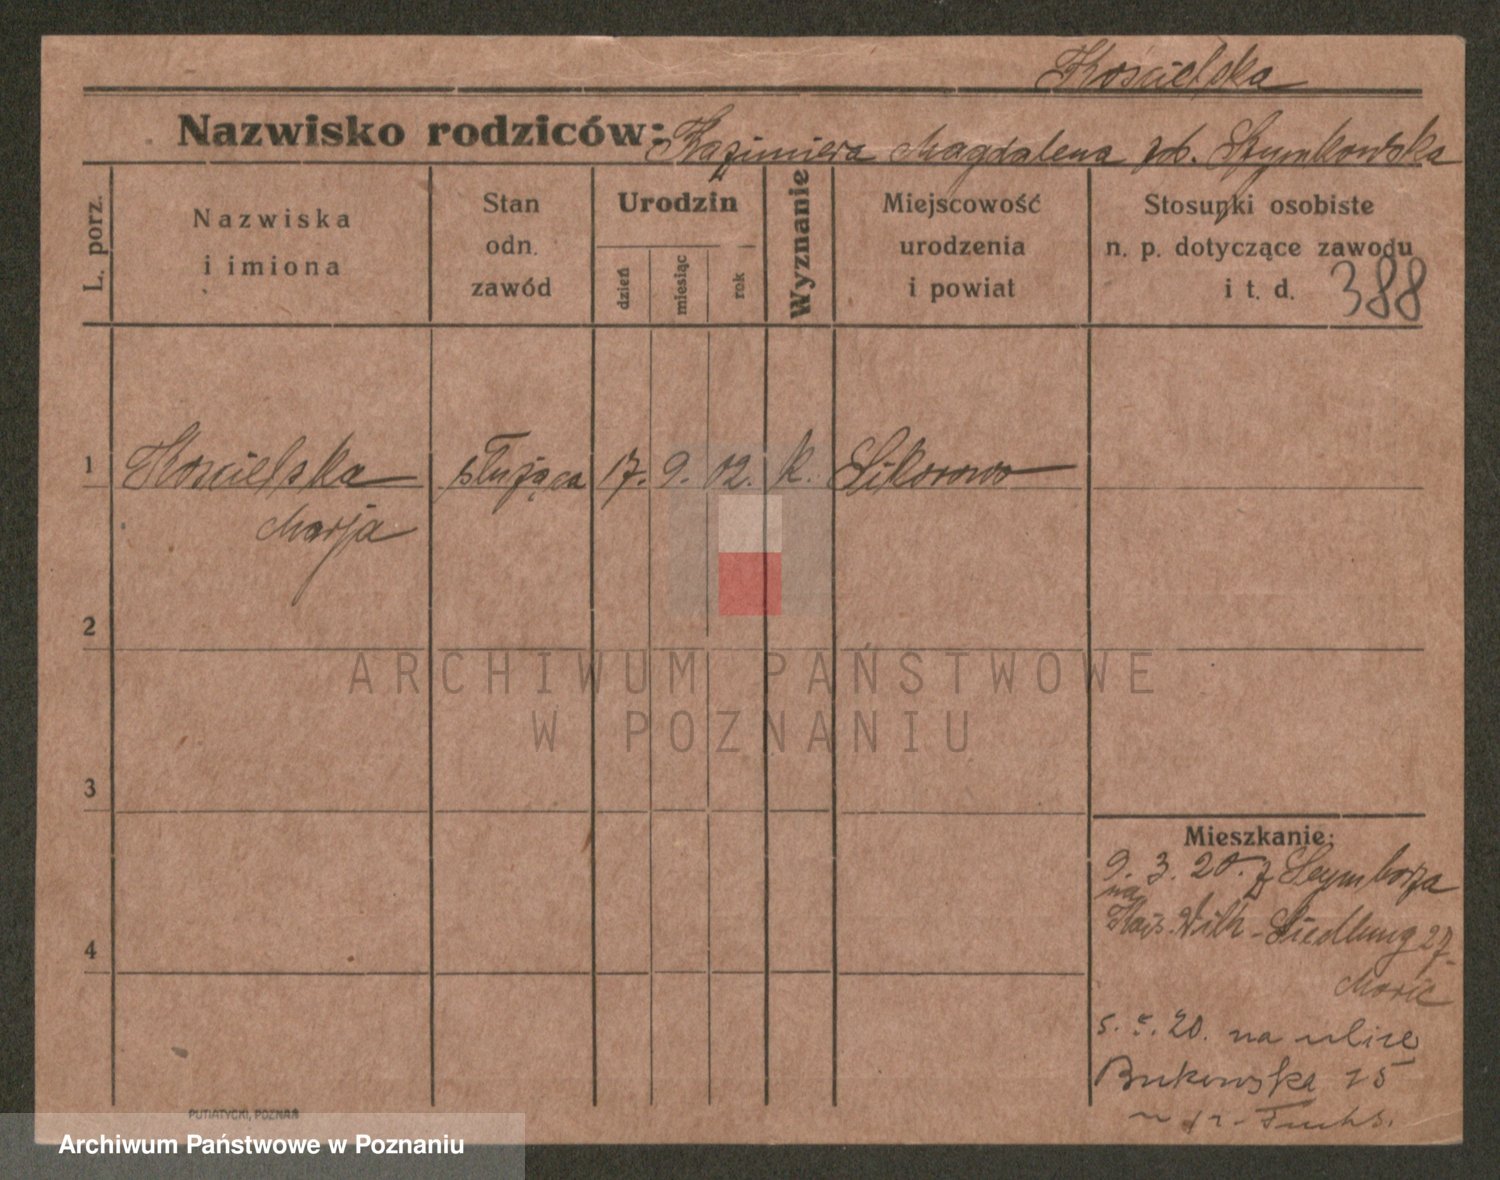 Kościelska
Nazwisko rodziców: Kazimiera Magdalena zd. Szymkowska
L. porz.
Nazwiska
i imiona
Stan
odn.
zawód
Urodzin
dzień
miesiąc
rok
Wyznanie
Miejscowość
urodzenia
i powiat
Stosunki osobiste
n. p. dotyczące zawodu
i t. d.
388
1 Kościelska służąca 17. 9. 02. k. Sikorowo
Marja
2
ARCHIWUM PAŃSTWOWE
W POZNANIU
3
Mieszkanie:
9. 3. 20. z Szymborza
na
Kais. Wilh-Siedlung 27.
4
5. 20. na ulicę
Bukowska 15
Fuchs.
PUTIATYCKI, POZNAŃ
Archiwum Państwowe w Poznaniu